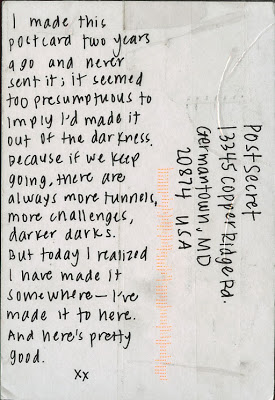 I made this
postcard two years
ago and never
sent it; it seemed
too presumptuous to
imply I'd made it
out of the darkness.
Because if we keep
going, there are
always more tunnels,
more challenges,
darker darks.
But today I realized
I have made it
somewhere—I've
made it to here.
And here's pretty
good.
xx
PostSecret
13345 Copper Ridge Rd.
Germantown, MD
20874 USA